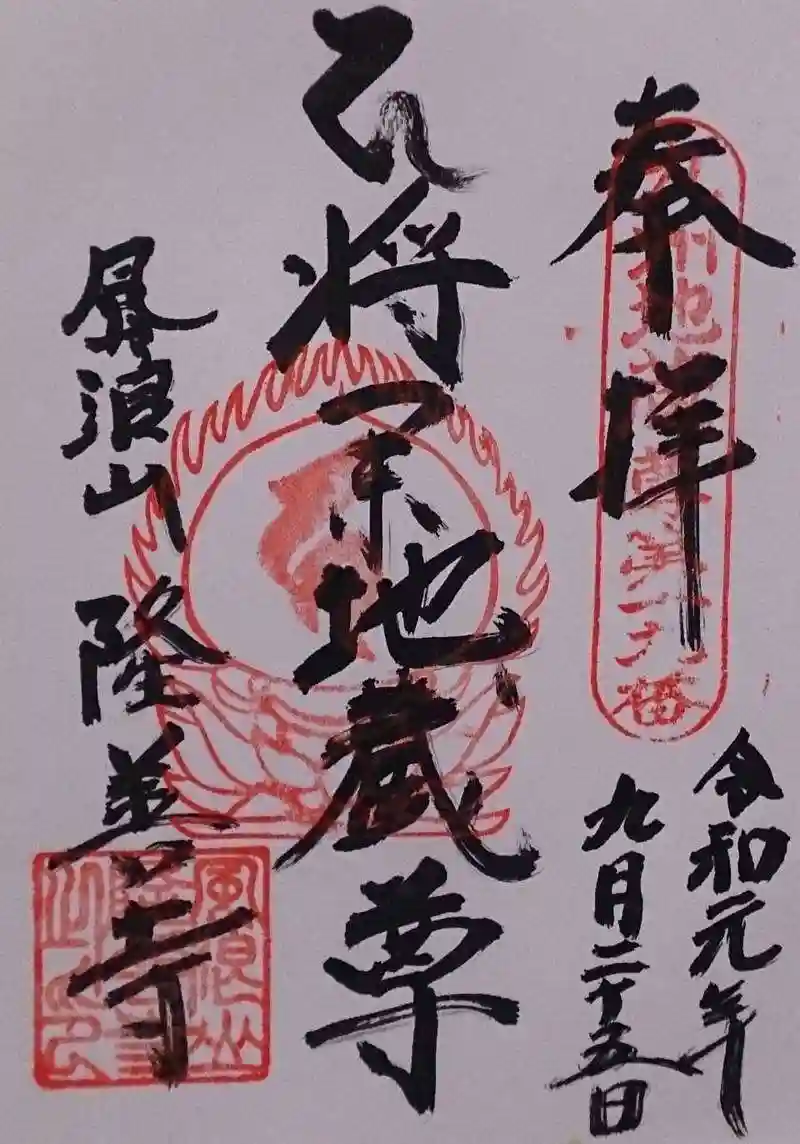 奉拝
州地蔵尊
番
令和元年
九月二十五日
将軍地蔵尊
風浪山 隆善寺